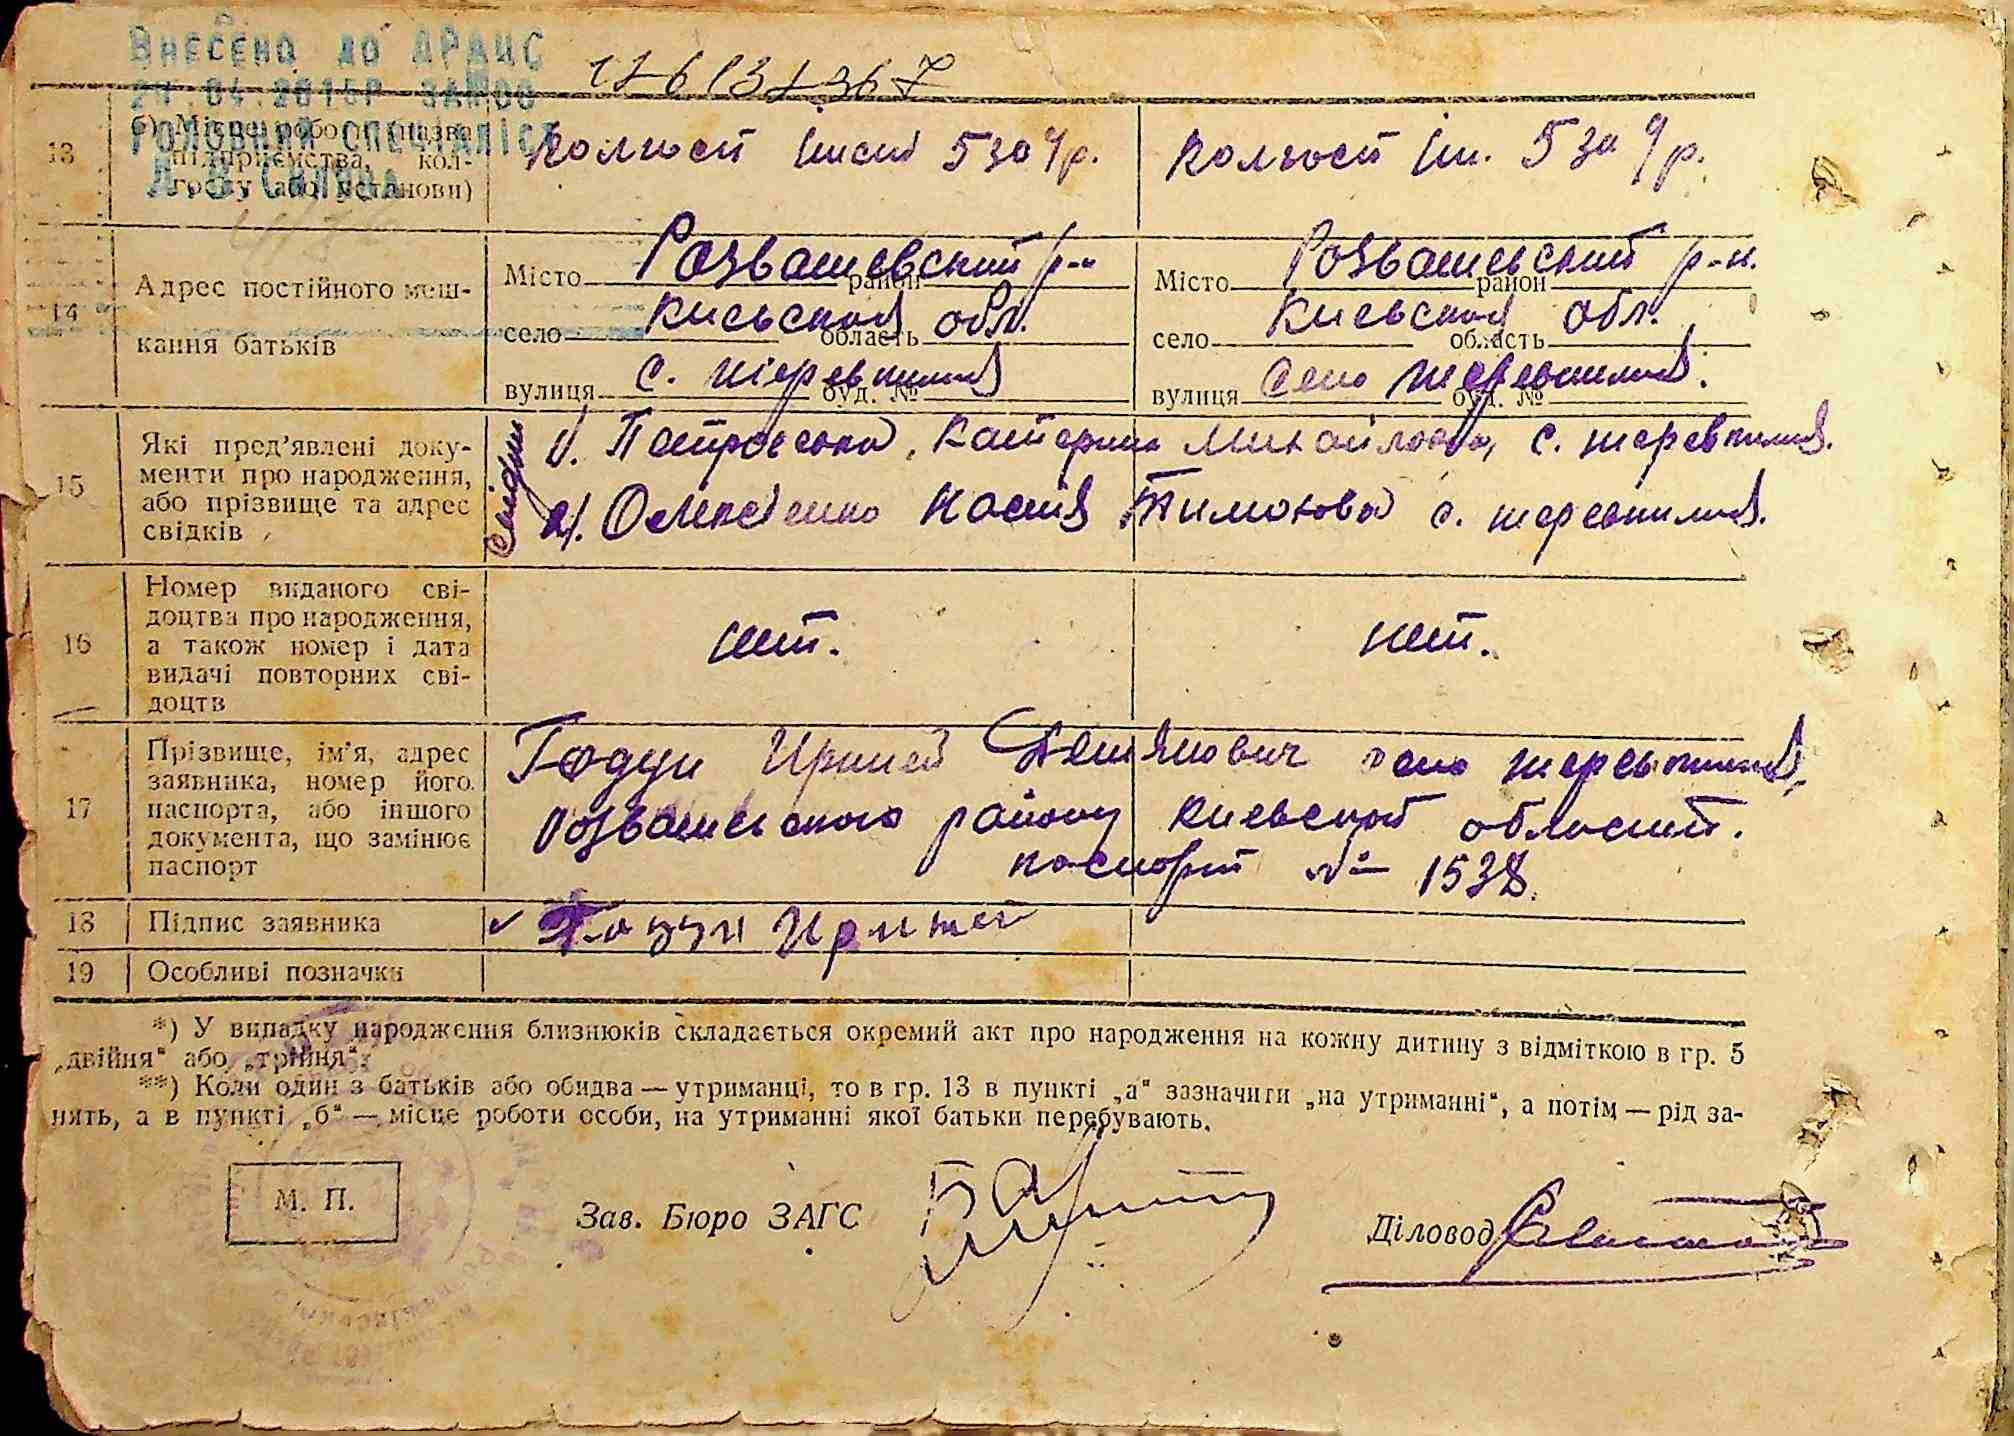 Внесено до ДРАЦС
24.04.2015р
Головний спеціаліст
13
б) Місце роботи (назва підприємства, колгоспу або установи)
Колгосп імені 5 за 4 р.
Колгосп ім. 5 за 4 р.
14
Адрес постійного мешкання батьків
Місто Розважевский р-н район
село Киевской обл. область
вулиця с. Шеревпилля буд. №
Місто Розважевский р-н. район
село Киевской обл. область
вулиця Село Шеревпилля. буд. №
15
Які пред’явлені документи про народження, або прізвище та адрес свідків
Свідки
1. Петровська, Катерина Михайловна, с. Шеревпилля.
2. Олексеенко Настя Тимохова с. Шеревпилля.
16
Номер виданого свідоцтва про народження, а також номер і дата видачі повторних свідоцтв
нет.
нет.
17
Прізвище, ім’я, адрес заявника, номер його паспорта, або іншого документа, що замінює паспорт
Годун Ириней Демянович село Шеревпилля,
Розважевского району Киевской области.
паспорт № 1538.
18
Підпис заявника
Годун Ириней
19
Особливі позначки
*) У випадку народження близнюків складається окремий акт про народження на кожну дитину з відміткою в гр. 5
„двійня“ або „трійня“.
**) Коли один з батьків або обидва — утриманці, то в гр. 13 в пункті „а“ зазначити „на утриманні“, а потім — рід за-
нять, а в пункті „б“ — місце роботи особи, на утриманні якої батьки перебувають.
М. П.
Зав. Бюро ЗАГС
Діловод